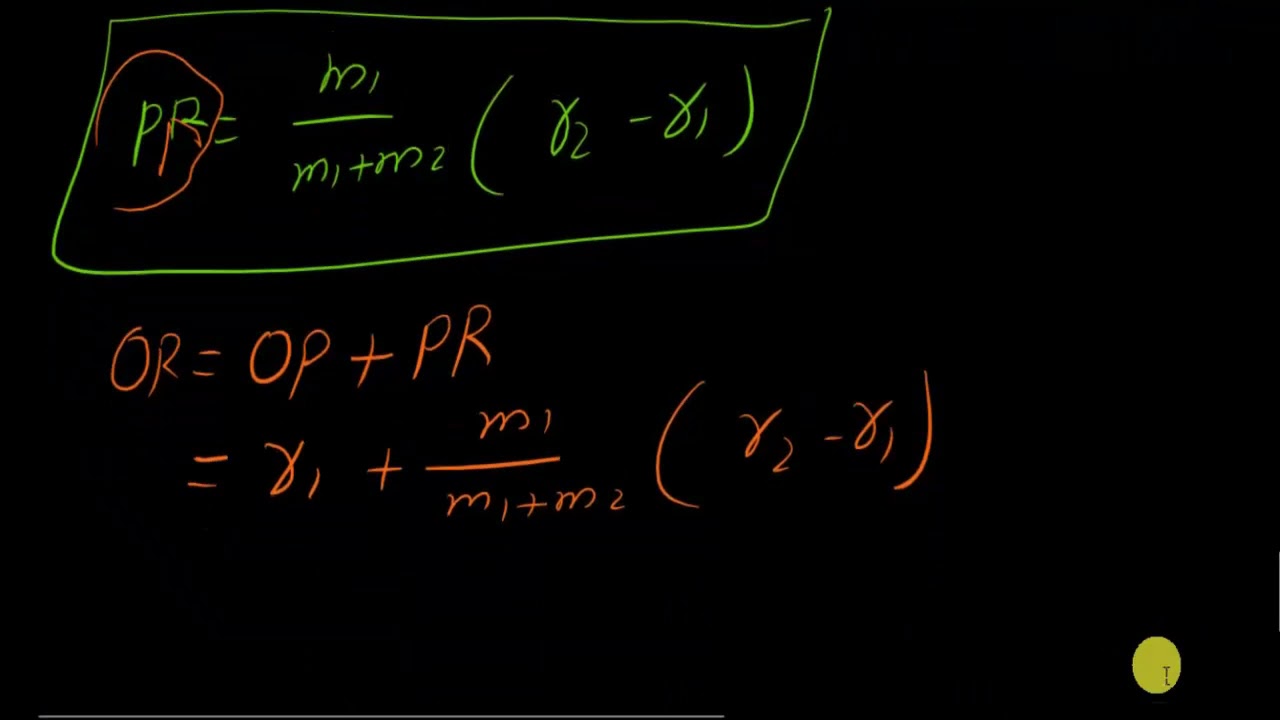 PR = m1/(m1+m2) ( r2 - r1 )
OR = OP + PR
= r1 + m1/(m1+m2) ( r2 - r1 )